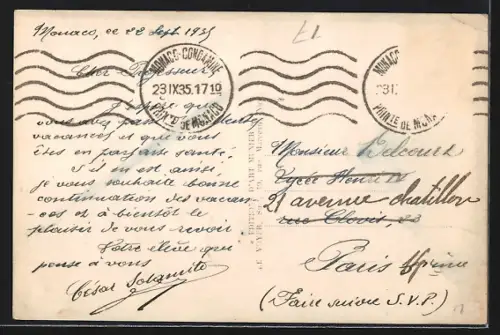 Monaco, ce 22 Sept 1935
£1
Cher Professeur
J'espère que
vous avez passé
vacances et que vous
êtes en parfaite santé.
S'il en est ainsi,
je vous souhaite bonne
continuation des vacan-
ces et à bientôt le
plaisir de vous revoir.
Votre élève qui
pense à vous
César Solamito
MONACO-CONDAMINE
23 IX 35. 17 10
PRINCIPTÉ DE MONACO
MONACO
PRINCIPTÉ DE MON
Monsieur Delcourt
Lycée Henri IV
21 avenue chatillon
rue Clovis, 23
Paris
(Faire suivre S.V.P.)